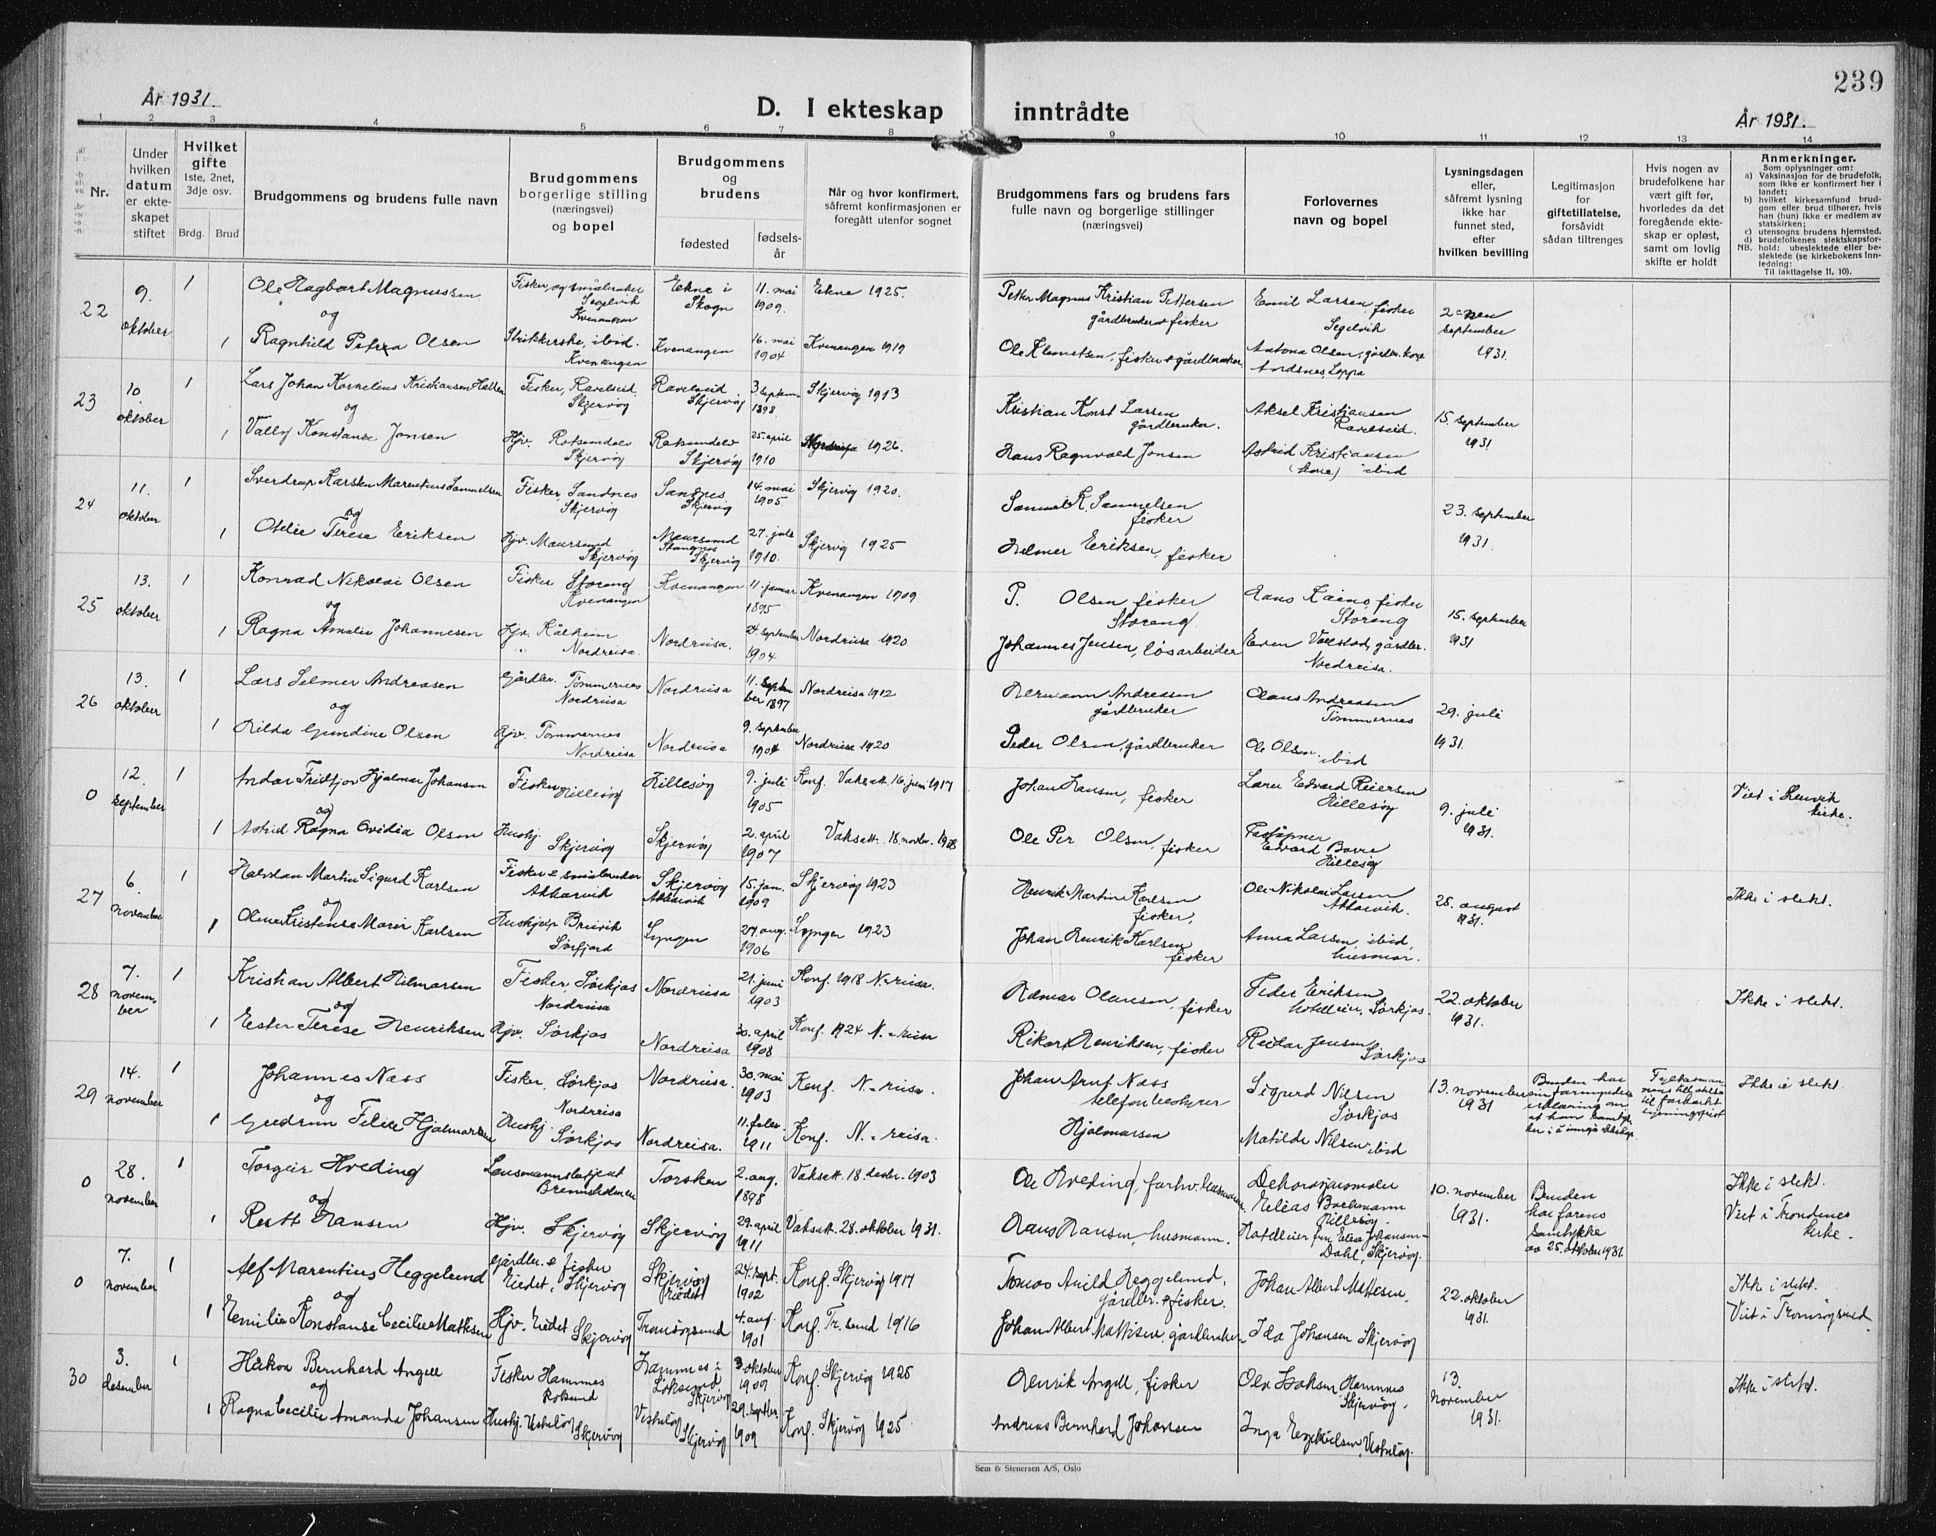 239
År 1931.
D. I ekteskap inntrådte
År 1931.
1 2 3 4 5 6 7 8 9 10 11 12 13 14
Nr.
Under hvilken datum er ekteskapet stiftet
Hvilket gifte
1ste, 2net, 3dje osv.
Brdg. Brud
Brudgommens og brudens fulle navn
Brudgommens borgerlige stilling (næringsvei) og bopel
Brudgommens og brudens
fødested
fødselsår
Når og hvor konfirmert, såfremt konfirmasjonen er foregått utenfor sognet
Brudgommens fars og brudens fars fulle navn og borgerlige stillinger (næringsvei)
Forlovernes navn og bopel
Lysningsdagen eller, såfremt lysning ikke har funnet sted, efter hvilken bevilling
Legitimasjon for giftetillatelse, forsåvidt sådan tiltrenges
Hvis nogen av brudefolkene har vært gift før, hvorledes da det foregående ekteskap er opløst, samt om lovlig skifte er holdt
Anmerkninger.
Som oplysninger om:
a) Vaksinasjon for de brudefolk, som ikke er konfirmert her i landet;
b) hvilket kirkesamfund brudgom eller brud tilhører, hvis han (hun) ikke er medlem av statskirken;
c) utensogns brudens hjemsted.
d) brudefolkenes slektskapsforhold: ubeslektede eller beslektede (se kirkebokens Innledning:
NB.
Til iakttagelse 11, 10).
22 9. oktober 1 Ole Hagbart Magnussen Fisker og småbruker Segelvik Kvenangen Ekne i Skogn 11. mai 1909. Ekne 1925. Petter Magnus Kristian Pettersen gårdbruker + fisker Emil Larsen, fisker Segelvik september 1931.
og
1 Ragnhild Petra Olsen Strikkerske, ibid. Kvenangen Kvenangen 16. mai 1904 Kvenangen 1919 Ole Klemetsen, fisker + gårdbruker Antona Olsen, gårdbr. kone Andsnes, Loppa
23 10. oktober 1 Lars Johan Kornelius Kristiansen Fisker, Ravelseid, Skjervøy Ravelseid Skjervøy 3. septem. 1898 Skjervøy 1913 Kristian Konst Larsen gårdbruker. Aksel Kristiansen Ravelseid. 15. september 1931
og
1 Vally Konstanse Jonsen Hjv. Rotsundelv Skjervøy Rotsundelv Skjervøy 25. april 1910 1926. Hans Ragnvald Jonsen Astrid Kristiansen (kone) ibid
24 11. oktober 1 Sverdrup Karsten Marentius Samuelsen Fisker, Sandnes Skjervøy Sandnes, Skjervøy 14. mai 1905. Skjervøy 1920. Samuel K. Samuelsen fisker 23. september 1931.
og
1 Otelie Terese Eriksen Hjv. Maursund Skjervøy Maursund Stangnes Skjervøy 27. juli 1910. Skjervøy 1925 Helmer Eriksen, fisker
25 13. oktober 1 Konrad Nikolai Olsen Fisker Storeng Kvenangen Kvenangen 11. januar 1895 Kvenangen 1909 P. Olsen fisker Storeng. Hans Kaino, fisker Storeng 15. september 1931
og
1 Ragna Amalie Johannesen Hjv. Nordreisa. Nordreisa. 24. september 1904 Nordreisa 1920 Johannes Jensen, løsarbeider Even gårdbr. Nordreisa.
26 13. oktober 1 Lars Selmer Andreasen Gårdbr. Tømmernes Nordreisa Nordreisa 11. september 1897 Nordreisa 1912 Hermann Andreasen gårdbruker Claus Andreasen Tømmernes 29. juli 1931.
og
1 Hilda Gundine Olsen Hjv. Tømmernes Nordreisa Nordreisa 9. september 1904 Nordreisa 1920 Peder Olsen, gårdbruker Ole Olsen ibid
0 12. september 1 Andor Fridtjov Hjalmar Johansen Fisker Hillesøy Hillesøy 9. juli 1905 Konf. Vaksatt. 16 juni 1917 Johan Hansen, fisker Edvard Reiersen Hillesøy 9. juli 1931. Viet i Lenvik kirke.
og
1 Astrid Ragna Ovidia Olsen Hushj. Skjervøy Skjervøy 2. april 1907 Vaksatt. 18. novbr. 1908 Ole Per Olsen, fisker Edvard Hillesøy
27 6. november 1 Halvdan Martin Sigurd Karlsen Fisker & småbruker Akkarvik Skjervøy Akkarvik 15. jan. 1909 Skjervøy 1923 Henrik Martin Karlsen fisker, Ole Nikolai Larsen Akkarvik. 25. august 1931. Ikke i slekt.
og
1 Kristense Marie Karlsen Hushjelp Sørfjord Lyngen 27. aug. 1906 Lyngen 1923 Johan Henrik Karlsen, fisker Anna Larsen, ibid, husmor.
28 7. november 1 Kristian Albert Hilmarsen Fisker, Sørkjos Nordreisa Nordreisa 21. juni 1903 Konf. 1918 N.-reisa. Olaussen, fisker Peder Eriksen hotelleier, Sørkjos. 22. oktober 1931. Ikke i slekt.
og
1 Ester Terese Henriksen Hjv. Sørkjos Nordreisa 30. april 1908 Konf. 1924 N.-reisa Rikart Henriksen, fisker Reidar Jensen Sørkjos
29 14. november 1 Johannes Næss Fisker, Sørkjos Nordreisa Nordreisa. 30. mai 1903 Konf. N.-reisa. Johan Arnt Næss telefonbestyrer Sigurd Nilsen Sørkjos 13. november 1931 Bruden har erklæring om at han samtykker i å inngå ekteskap. Ikke i slekt.
og
1 Gudrun Hjalmarsen Hushj. Sørkjos Nordreisa. 11. febr. 1911 Konf. N.-reisa. Hjalmarsen Matilde Nilsen ibid
0 28. november 1 Torgeir Hveding Lensmannsbetjent Brennsholmen Torsken 2. aug. 1898 Vaksatt. 18. desbr. 1903 Ole Hveding, forhv. lensmann Dekorasjonsmaler Elias Bachmann Hillesøy. 10. november 1931. Bruden har farens samtykke av 25. oktober 1931 Ikke i slekt. Viet i Trondenes kirke.
og
1 Hansen Hjv. Skjervøy Skjervøy 29. april 1911 Vaksatt. 28. oktober 1931. Hans Hansen, husmann. Hotelleier fru Elisa Johansen-Dahl, Skjervøy.
0 7. november 1 Alf Marentius Heggelund gårdbr. & fisker Eidet, Skjervøy Skjervøy Eidet 24. sept. 1902 Konf. Skjervøy 1917 Tomas Arild Heggelund, gårdbr. + fisker. Johan Albert Mattesen. 22. oktober 1931. Ikke i slekt. Viet i Tromsøysund.
og
1 Emilie Konstanse Cecilie Mathisen Hjv. Eidet, Skjervøy Tromsøysund 4. aug. 1901 Konf. Tr.sund 1916 Johan Albert Mattisen, gårdbruker Ida Johansen Skjervøy
30 3. desember 1 Håkon Bernhard Angell Fisker Hamnnes Rotsund Hamnnes i Skjervøy 3. oktober 1909 Konf. Skjervøy 1925 Henrik Angell, fisker Ole Isaksen Hamnnes Skjervøy. 13. november 1931. Ikke i slekt.
og
1 Ragna Cecilie Amanda Johansen Hushj. Skjervøy Skjervøy 29. septbr. 1909 Konf. Skjervøy 1925. Andreas Bernhard Johansen Inga
Sem & Stenersen A/S, Oslo